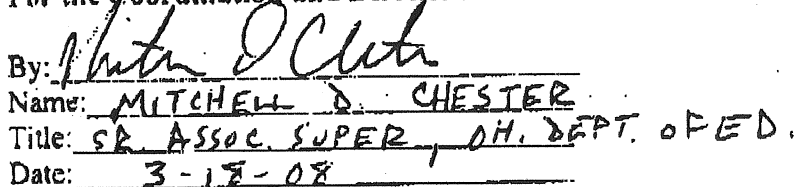 By:
Name: MITCHELL D. CHESTER
Title: SR. ASSOC. SUPER, OH. DEPT. OF ED.
Date: 3-18-08